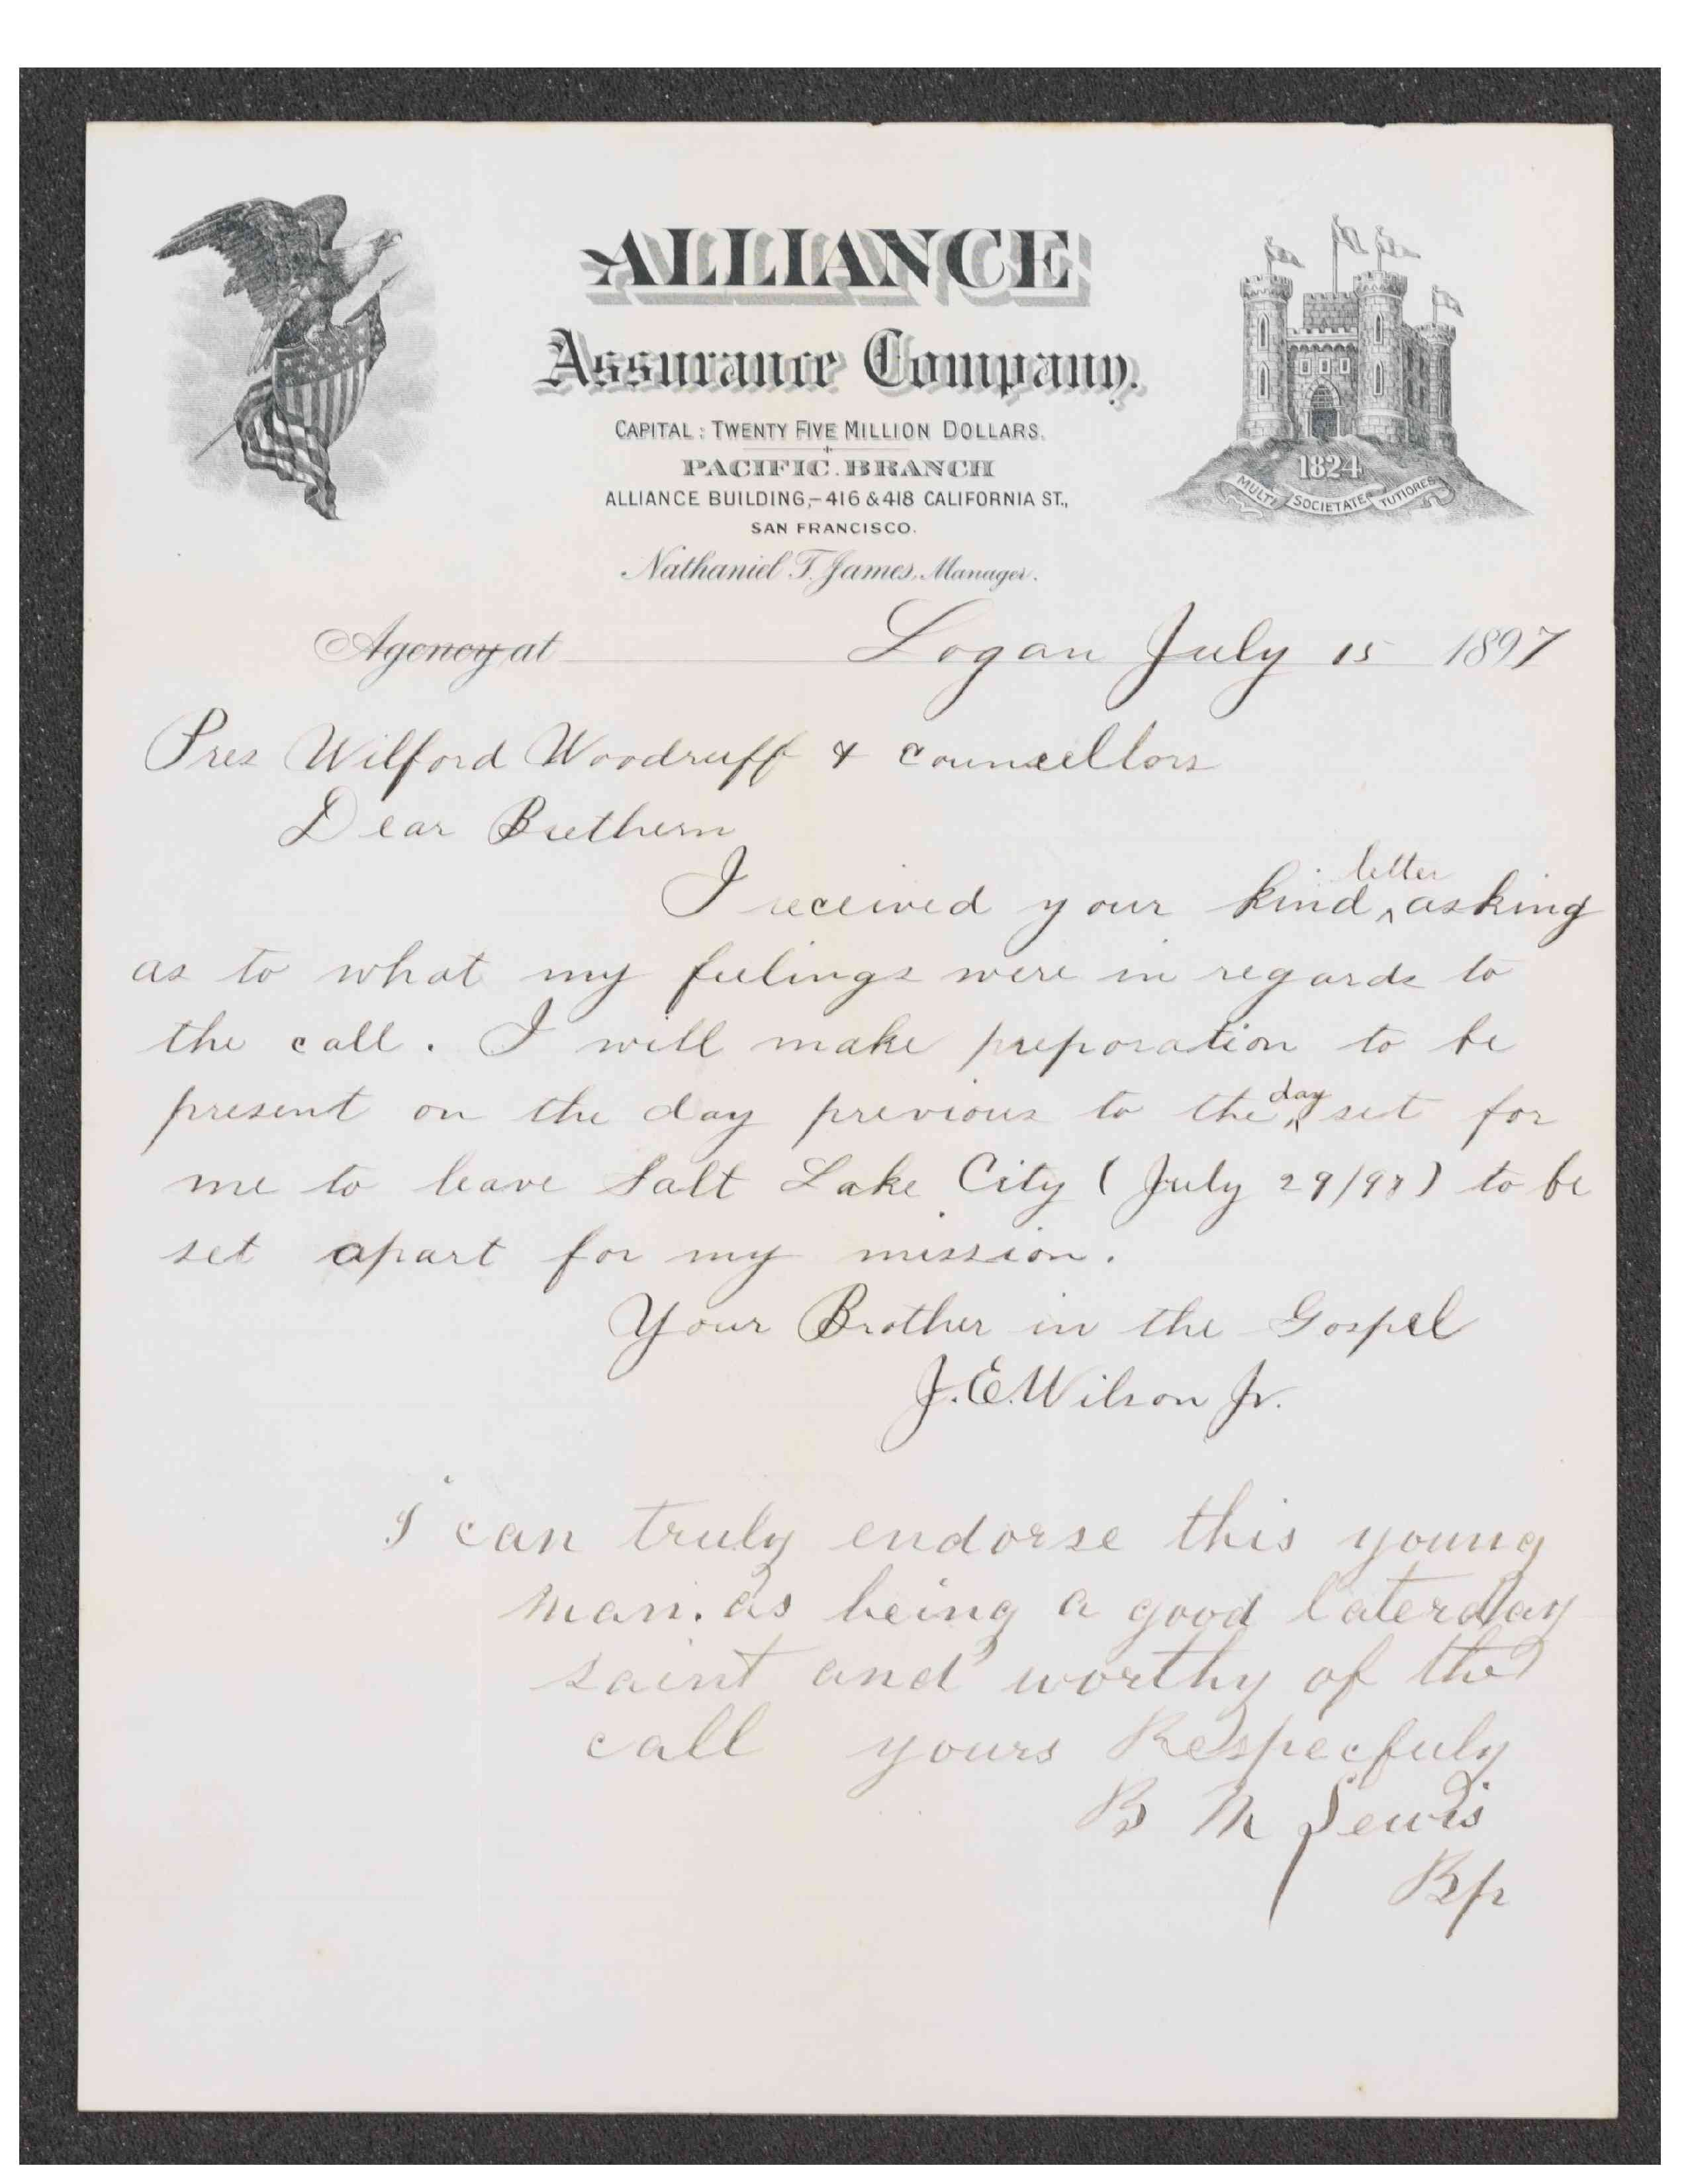 ALLIANCE
Assurance Company.
CAPITAL: TWENTY FIVE MILLION DOLLARS.
PACIFIC BRANCH
ALLIANCE BUILDING,-416 & 418 CALIFORNIA ST.,
SAN FRANCISCO.
Nathaniel T. James, Manager.
1824
MULTI SOCIETATE TUTIORES
Agency at Logan July 15 1897
Pres Wilford Woodruff & Councellors
Dear Brethern
I received your kind letter asking
as to what my feelings were in regards to
the call. I will make preporation to be
present on the day previous to the day set for
me to leave Salt Lake City (July 29/97) to be
set apart for my mission.
Your Brother in the Gospel
J.E. Wilson Jr.
I can truly endorse this young
man. as being a good laterday
saint and worthy of the
call yours Respecfuly
B M Lewis
Bp